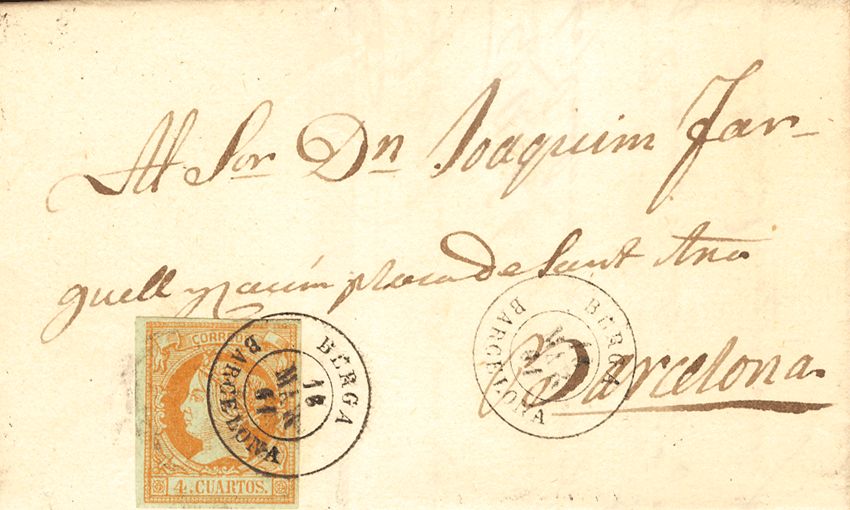 Al Sor Dn Joaquim Far-
guell y placa de Sant Ana
Barcelona
CORREOS
4 CUARTOS.
BERGA
18 MAR 61
BARCELONA
BERGA
61
BARCELONA